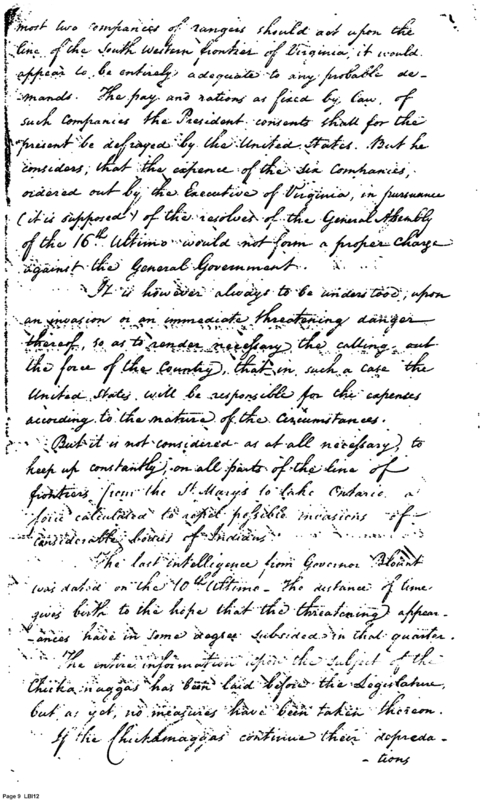 most two companies of rangers should act upon the
line of the South Western frontier of Virginia, it would
appear to be entirely adequate to any probable de-
mands. The pay and rations as fixed by law, of
such companies the President consents shall for the
present be defrayed by the United States. But he
considers, that the expence of the Six Companies,
ordered out by the Executive of Virginia, in pursuance
(it is supposed) of the resolves of the General Assembly
of the 16th Ultimo would not form a proper charge
against the General Government.
It is however always to be understood, upon
an invasion or an immediate threatening danger
thereof, so as to render necessary the calling out
the force of the Country, that in such a case the
United States will be responsible for the expenses
according to the nature of the Circumstances.
But it is not considered as at all necessary, to
keep up constantly, on all parts of the line of
frontiers from the St. Marys to lake Ontario a
force calculated to repel possible invasions of
considerable bodies of Indians.
The last intelligence from Governor Blount
was dated on the 10th Ultimo - The distance of time
gives birth to the hope that the threatening appear-
-ances have in some degree subsided in that quarter.
The entire information upon the subject of the
Chickamaggas has been laid before the Legislature,
but as yet, no measures have been taken thereon.
If the Chickamaggas continue their depreda-
-tions
Page 9 LBI12